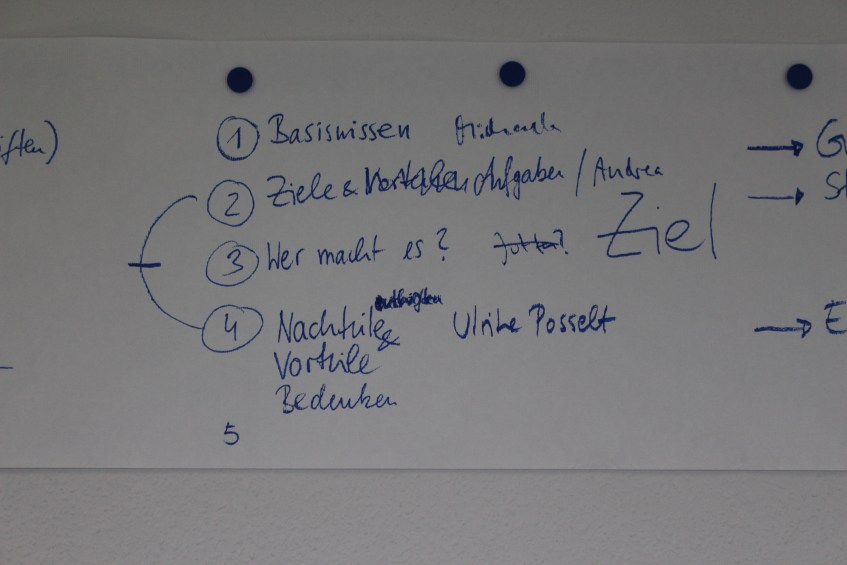 iften)
① Basiswissen
→ G
② Ziele & Aufgaben / Andrea
→ St
③ Wer macht es? Jutta? Ziel
④ Nachteile & Ulrike Posselt
→ E
Vorteile
Bedenken
5